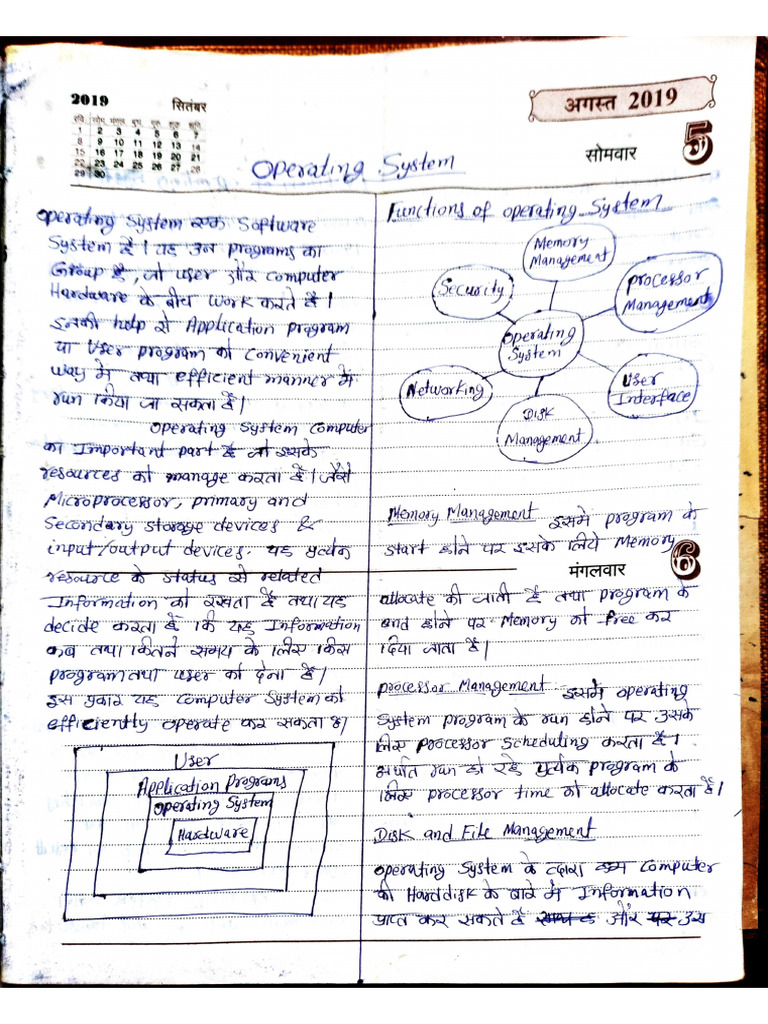 2019 सितंबर
रवि सोम मंगल बुध गुरु शुक्र शनि
1 2 3 4 5 6 7
8 9 10 11 12 13 14
15 16 17 18 19 20 21
22 23 24 25 26 27 28
29 30
अगस्त 2019
सोमवार 5
Operating System
Operating System एक Software
System है। यह उन programs का
Group है, जो user और computer
Hardware के बीच work करते है।
इनकी help से Application program
या User program को convenient
way में तथा efficient manner में
run किया जा सकता है।
Operating System computer
का Important part है जो इसके
resources को manage करता है। जैसे
Microprocessor, primary and
Secondary storage devices &
input/output devices. यह प्रत्येक
resource के status से related
Information को रखता है तथा यह
decide करता है कि यह Information
कब तथा कितने समय के लिए किस
program तथा user को देना है।
इस प्रकार यह computer System को
efficiently operate कर सकता है।
User
Application Programs
Operating System
Hardware
Functions of operating System
Memory
Management
Security
Processor
Management
Operating
System
Networking
User
Interface
Disk
Management
Memory Management इसमे program के
start होने पर इसके लिये Memory
मंगलवार 6
allocate की जाती है तथा program के
end होने पर Memory को free कर
दिया जाता है।
Processor Management इसमे operating
System program के run होने पर उसके
लिए processor Scheduling करता है।
अर्थात run हो रहे प्रत्येक program के
लिए processor time को allocate करता है।
Disk and File Management
Operating System के द्वारा हम computer
की Harddisk के बारे में Information
प्राप्त कर सकते है और उस